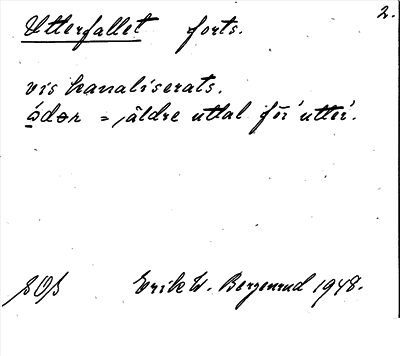 2.
Utterfallet forts.
vis kanaliserats.
ódər = äldre uttal för 'utter'.
SOS Erik W. Bergenrud 1948.